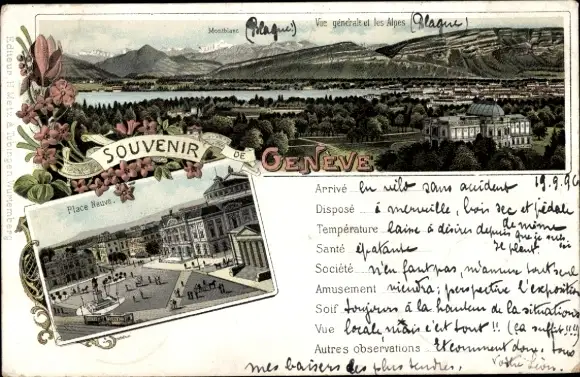 Montblanc (Blague) Vue générale et les Alpes (Blague)
SOUVENIR DE GENÈVE
Place Neuve.
Arrivé En vélo sans accident 19.9.96
Disposé à merveille, bois sec et pédale de même
Température laisse à désirer depuis que je suis ici
Santé épatante Il pleut.
Société n'en faut pas, m'amuse tout seul
Amusement viendra; perspective l'exposition
Soif toujours à la hauteur de la situation
Vue locale, mais c'est tout!! (ça suffit!!!)
Autres observations Et comment donc, tous
mes baisers les plus tendres. Votre Léon.